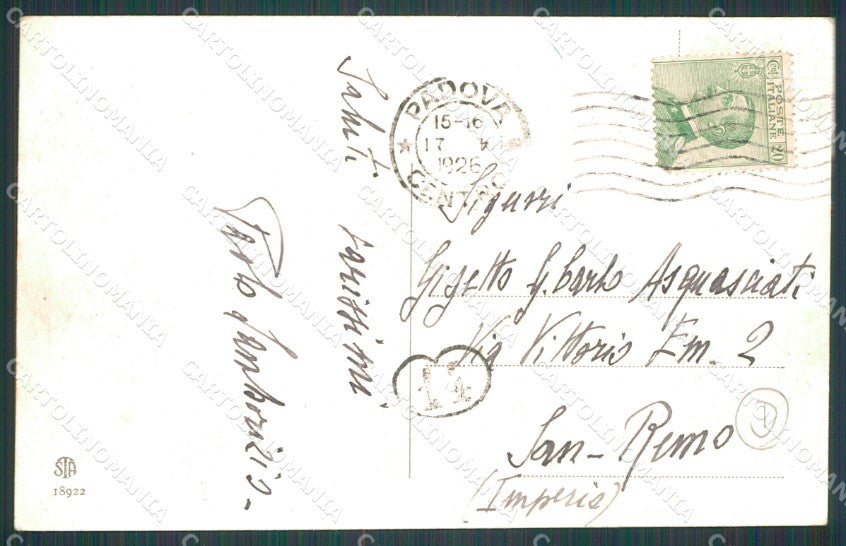 Saluti
carissimi
Paolo
PADOVA
15-16
17 V
1926
CENTRO
Cent
POSTE
ITALIANE
20
Gigetto G. Carlo Asquasciati
Via Vittorio Em. 2
San-Remo
(Imperia)
14
STA
18922
CARTOLINOMANIA